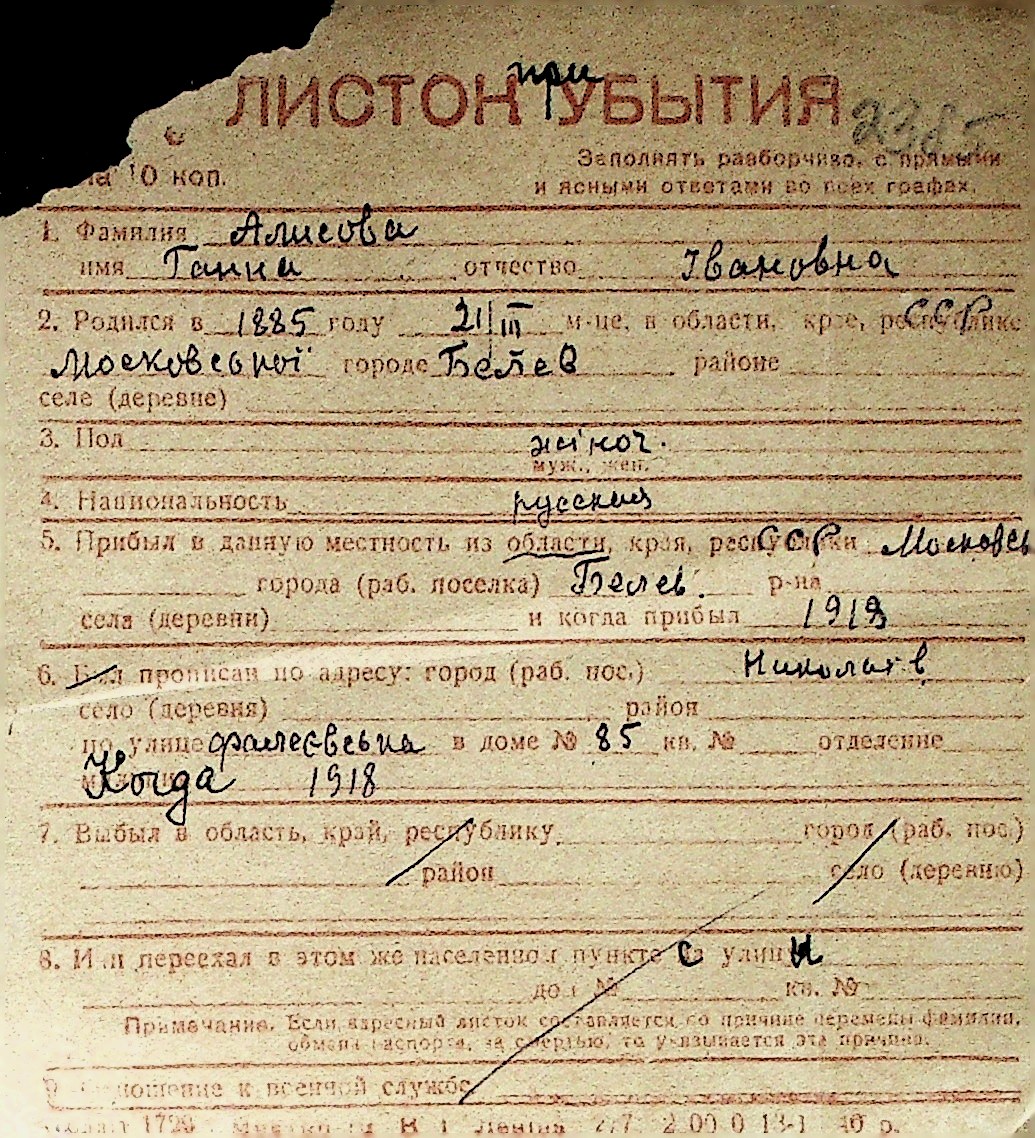 при
ЛИСТОК УБЫТИЯ
10 коп.
Заполнять разборчиво, с прямыми
и ясными ответами во всех графах.
1. Фамилия Алисова
имя Ганна отчество Івановна
2. Родился в 1885 году 21/III м-це, в области, крае, республике ССР
Московської городе Белев районе
селе (деревне)
3. Пол жіноч.
муж., жен.
4. Национальность русская
5. Прибыл в данную местность из области, края, республики ССР Московсь
города (раб. поселка) Белев. р-на
села (деревни) и когда прибыл 1918
6. Был прописан по адресу: город (раб. пос.) Николаев
село (деревня) район
по улице фалеєвська в доме № 85 кв. № отделение
Когда 1918
7. Выбыл в область, край, республику город (раб. пос.)
район село (деревню)
8. Или переехал в этом же населенном пункте с улицы
дом № кв. №
Примечание. Если адресный листок составляется по причине перемены фамилии,
обмена паспорта, за смертью, то указывается эта причина.
9. Отношение к военной службе